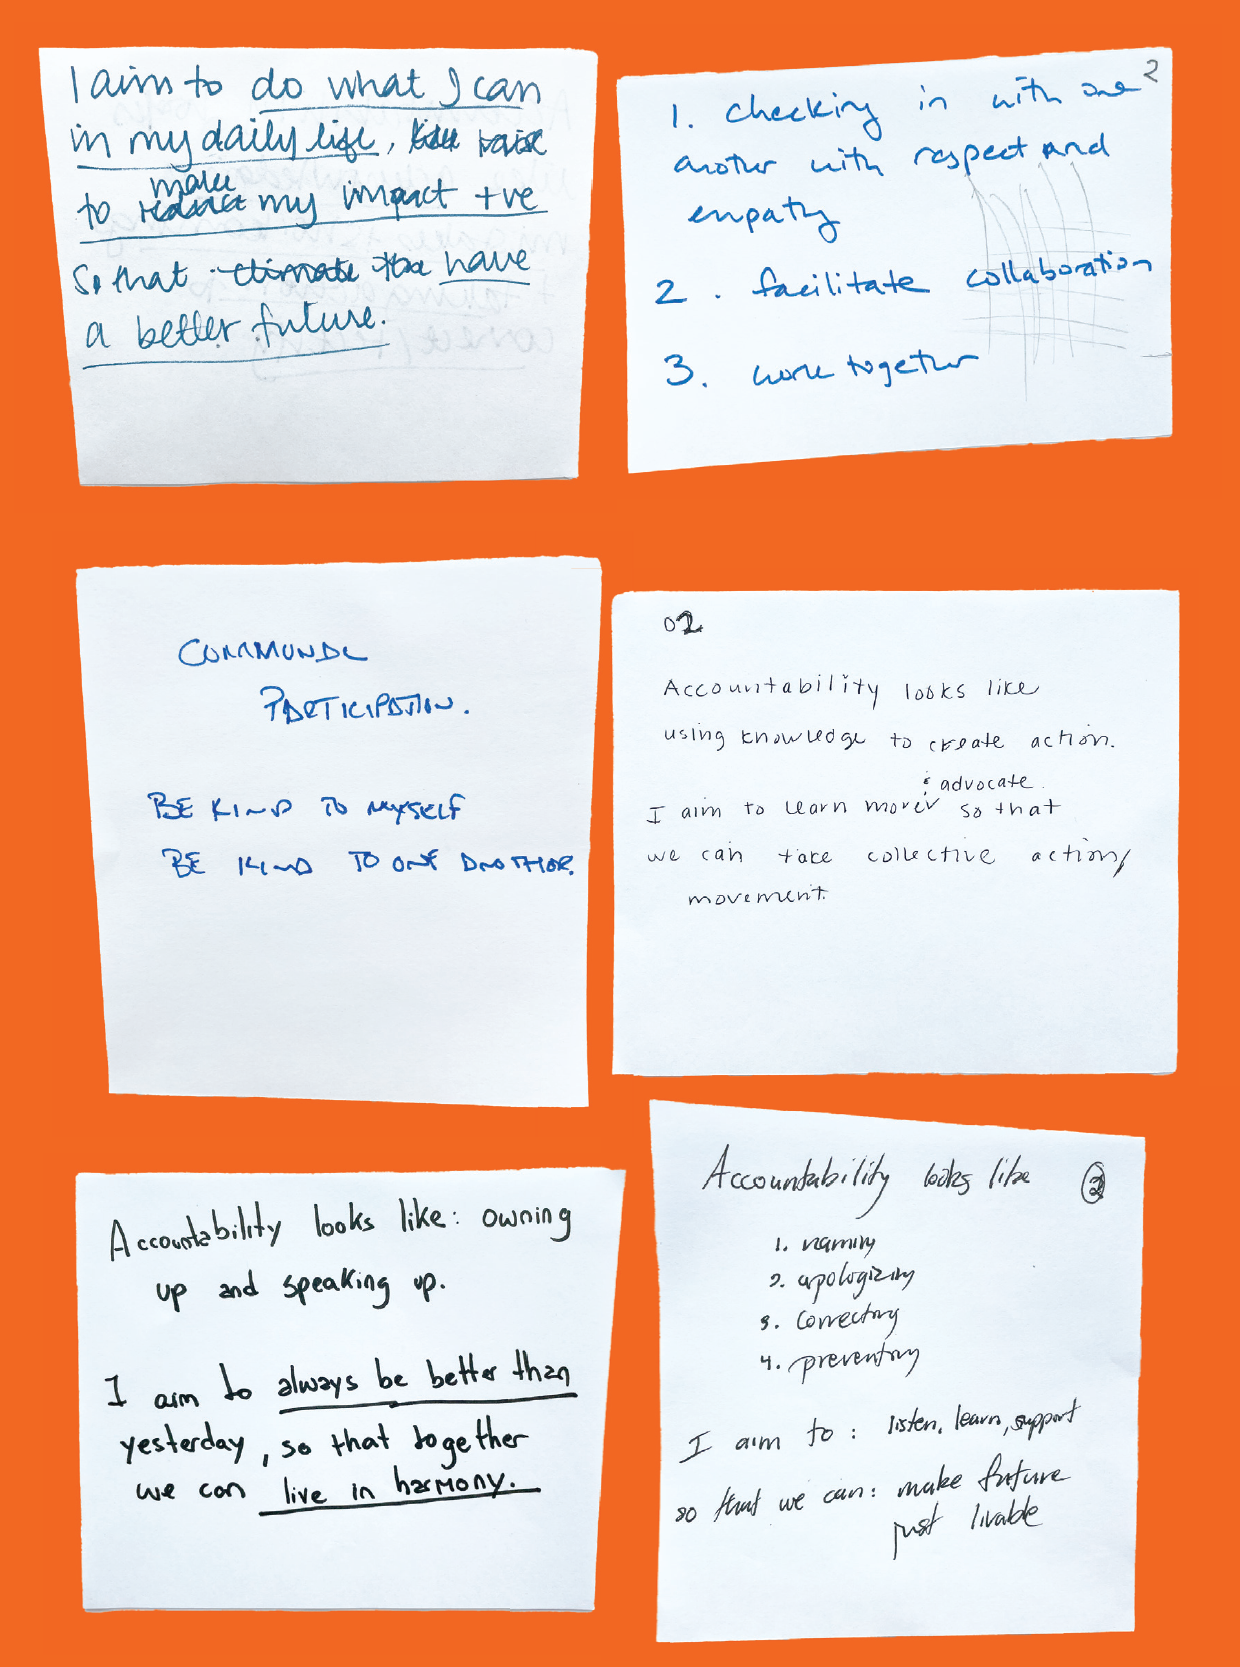 I aim to do what I can
in my daily life,
make
to my impact +ve
So that climate have
a better future.
2
1. checking in with one
another with respect and
empaty
2. facilitate collaboration
3. work together
COMMUNAL
PARTICIPATION.
BE KIND TO MYSELF
BE KIND TO ONE ANOTHER.
02
Accountability looks like
using knowledge to create action.
& advocate.
I aim to learn more so that
we can take collective action/
movement.
Accountability looks like: owning
up and speaking up.
I aim to always be better than
yesterday, so that together
we can live in harmony.
Accountability looks like 2
1. naming
2. apologizing
3. correcting
4. preventing
I aim to: listen, learn, support
so that we can: make future
just livable